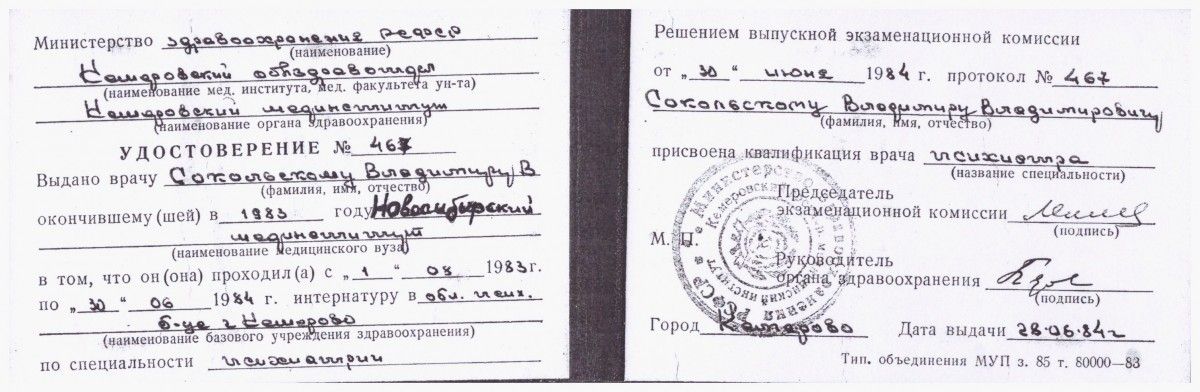 Министерство здравоохранения РСФСР
(наименование)
Кемеровский облздравотдел
(наименование мед. института, мед. факультета ун-та)
Кемеровский мединститут
(наименование органа здравоохранения)
УДОСТОВЕРЕНИЕ № 467
Выдано врачу Сокольскому Владимиру В
(фамилия, имя, отчество)
окончившему (шей) в 1983 году Новосибирский
мединститут
(наименование медицинского вуза)
в том, что он (она) проходил (а) с „ 1 “ 08 1983 г.
по „ 30 “ 06 1984 г. интернатуру в обл. псих.
б-це г Кемерово
(наименование базового учреждения здравоохранения)
по специальности психиатрии
Решением выпускной экзаменационной комиссии
от „ 30 “ июня 1984 г. протокол № 467
Сокольскому Владимиру Владимировичу
(фамилия, имя, отчество)
присвоена квалификация врача психиатра
(название специальности)
Председатель
экзаменационной комиссии
(подпись)
М. П.
Руководитель
органа здравоохранения
(подпись)
Город Кемерово Дата выдачи 28.06.84г
Тип. объединения МУП з. 85 т. 80000—83
Министерство здравоохранения РСФСР